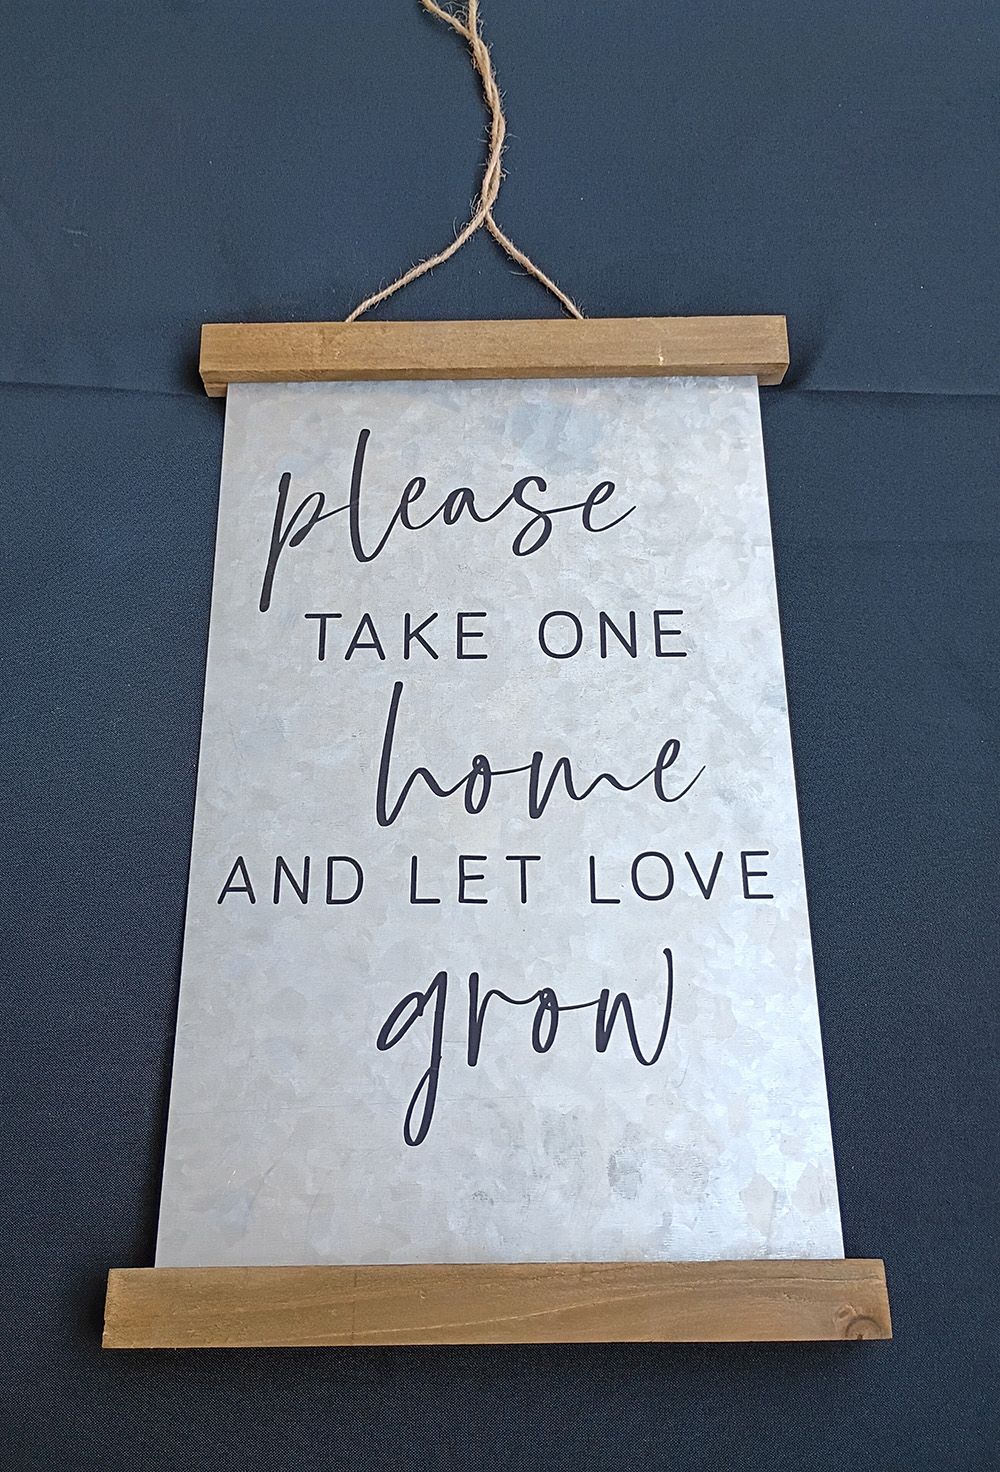 please
TAKE ONE
home
AND LET LOVE
grow